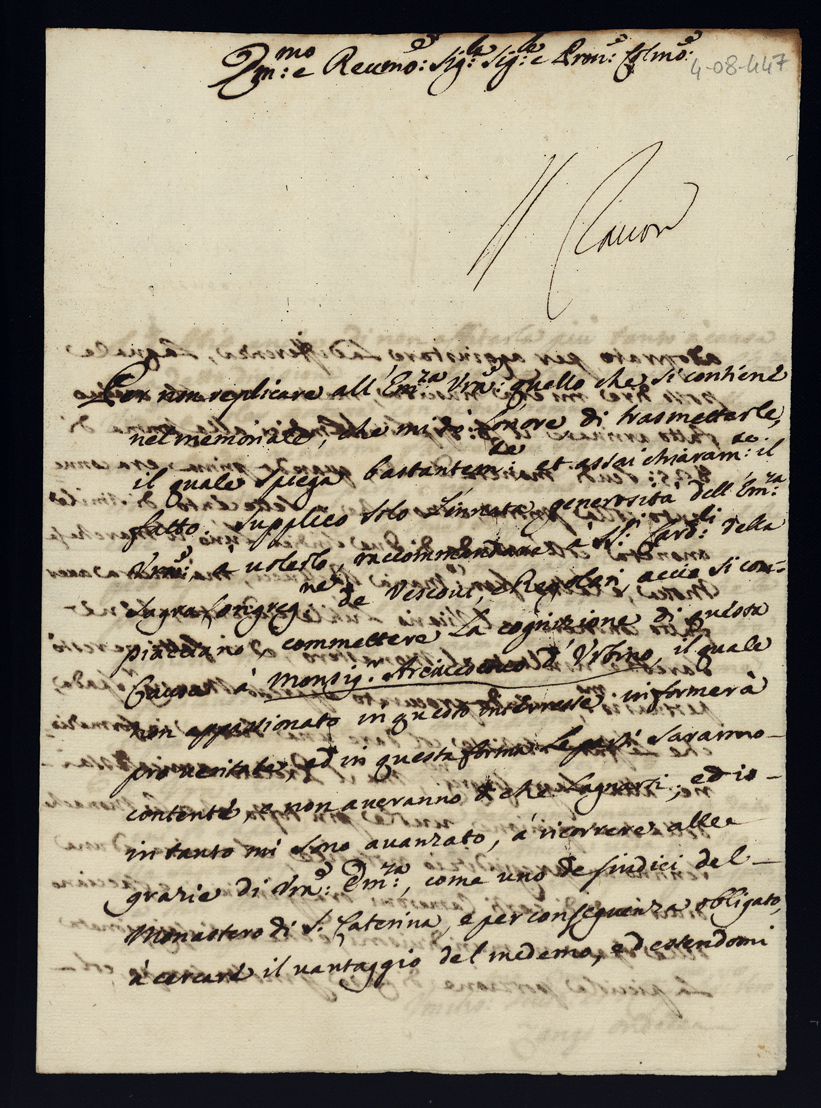 Em:mo e Reumo: Sig:re Sig:re e Prm: Colmo:
4-08-447
Per non replicare all'Em:za Vra: quello che si contiene
nel memoriale, che mi dò l'onore di trasmetterle,
il quale spiega bastantem:te et assai chiaram:te il
fatto, supplico solo l'innata generosità dell'Em:za
Vra: à volerlo raccommandare a SS:ri Card:li della
Sagra Congreg:ne de Vescoui, e Regolari, acciò si com-
piacciano, commettere la cognizione di questa
Causa à Monsig:r Arciuescouo d'Urbino, il quale
non appassionato in questo interesse informerà
pro ueritate, ed in questa forma le parti saranno
contente, e non aueranno di che lagnarsi, ed io
intanto mi sono auanzato, à ricorrere alle
grazie di Vra: Em:za, come uno de sindici del
Monastero di S. Caterina, e per conseguenza obligato,
à cercare il uantaggio del medemo, ed essendomi